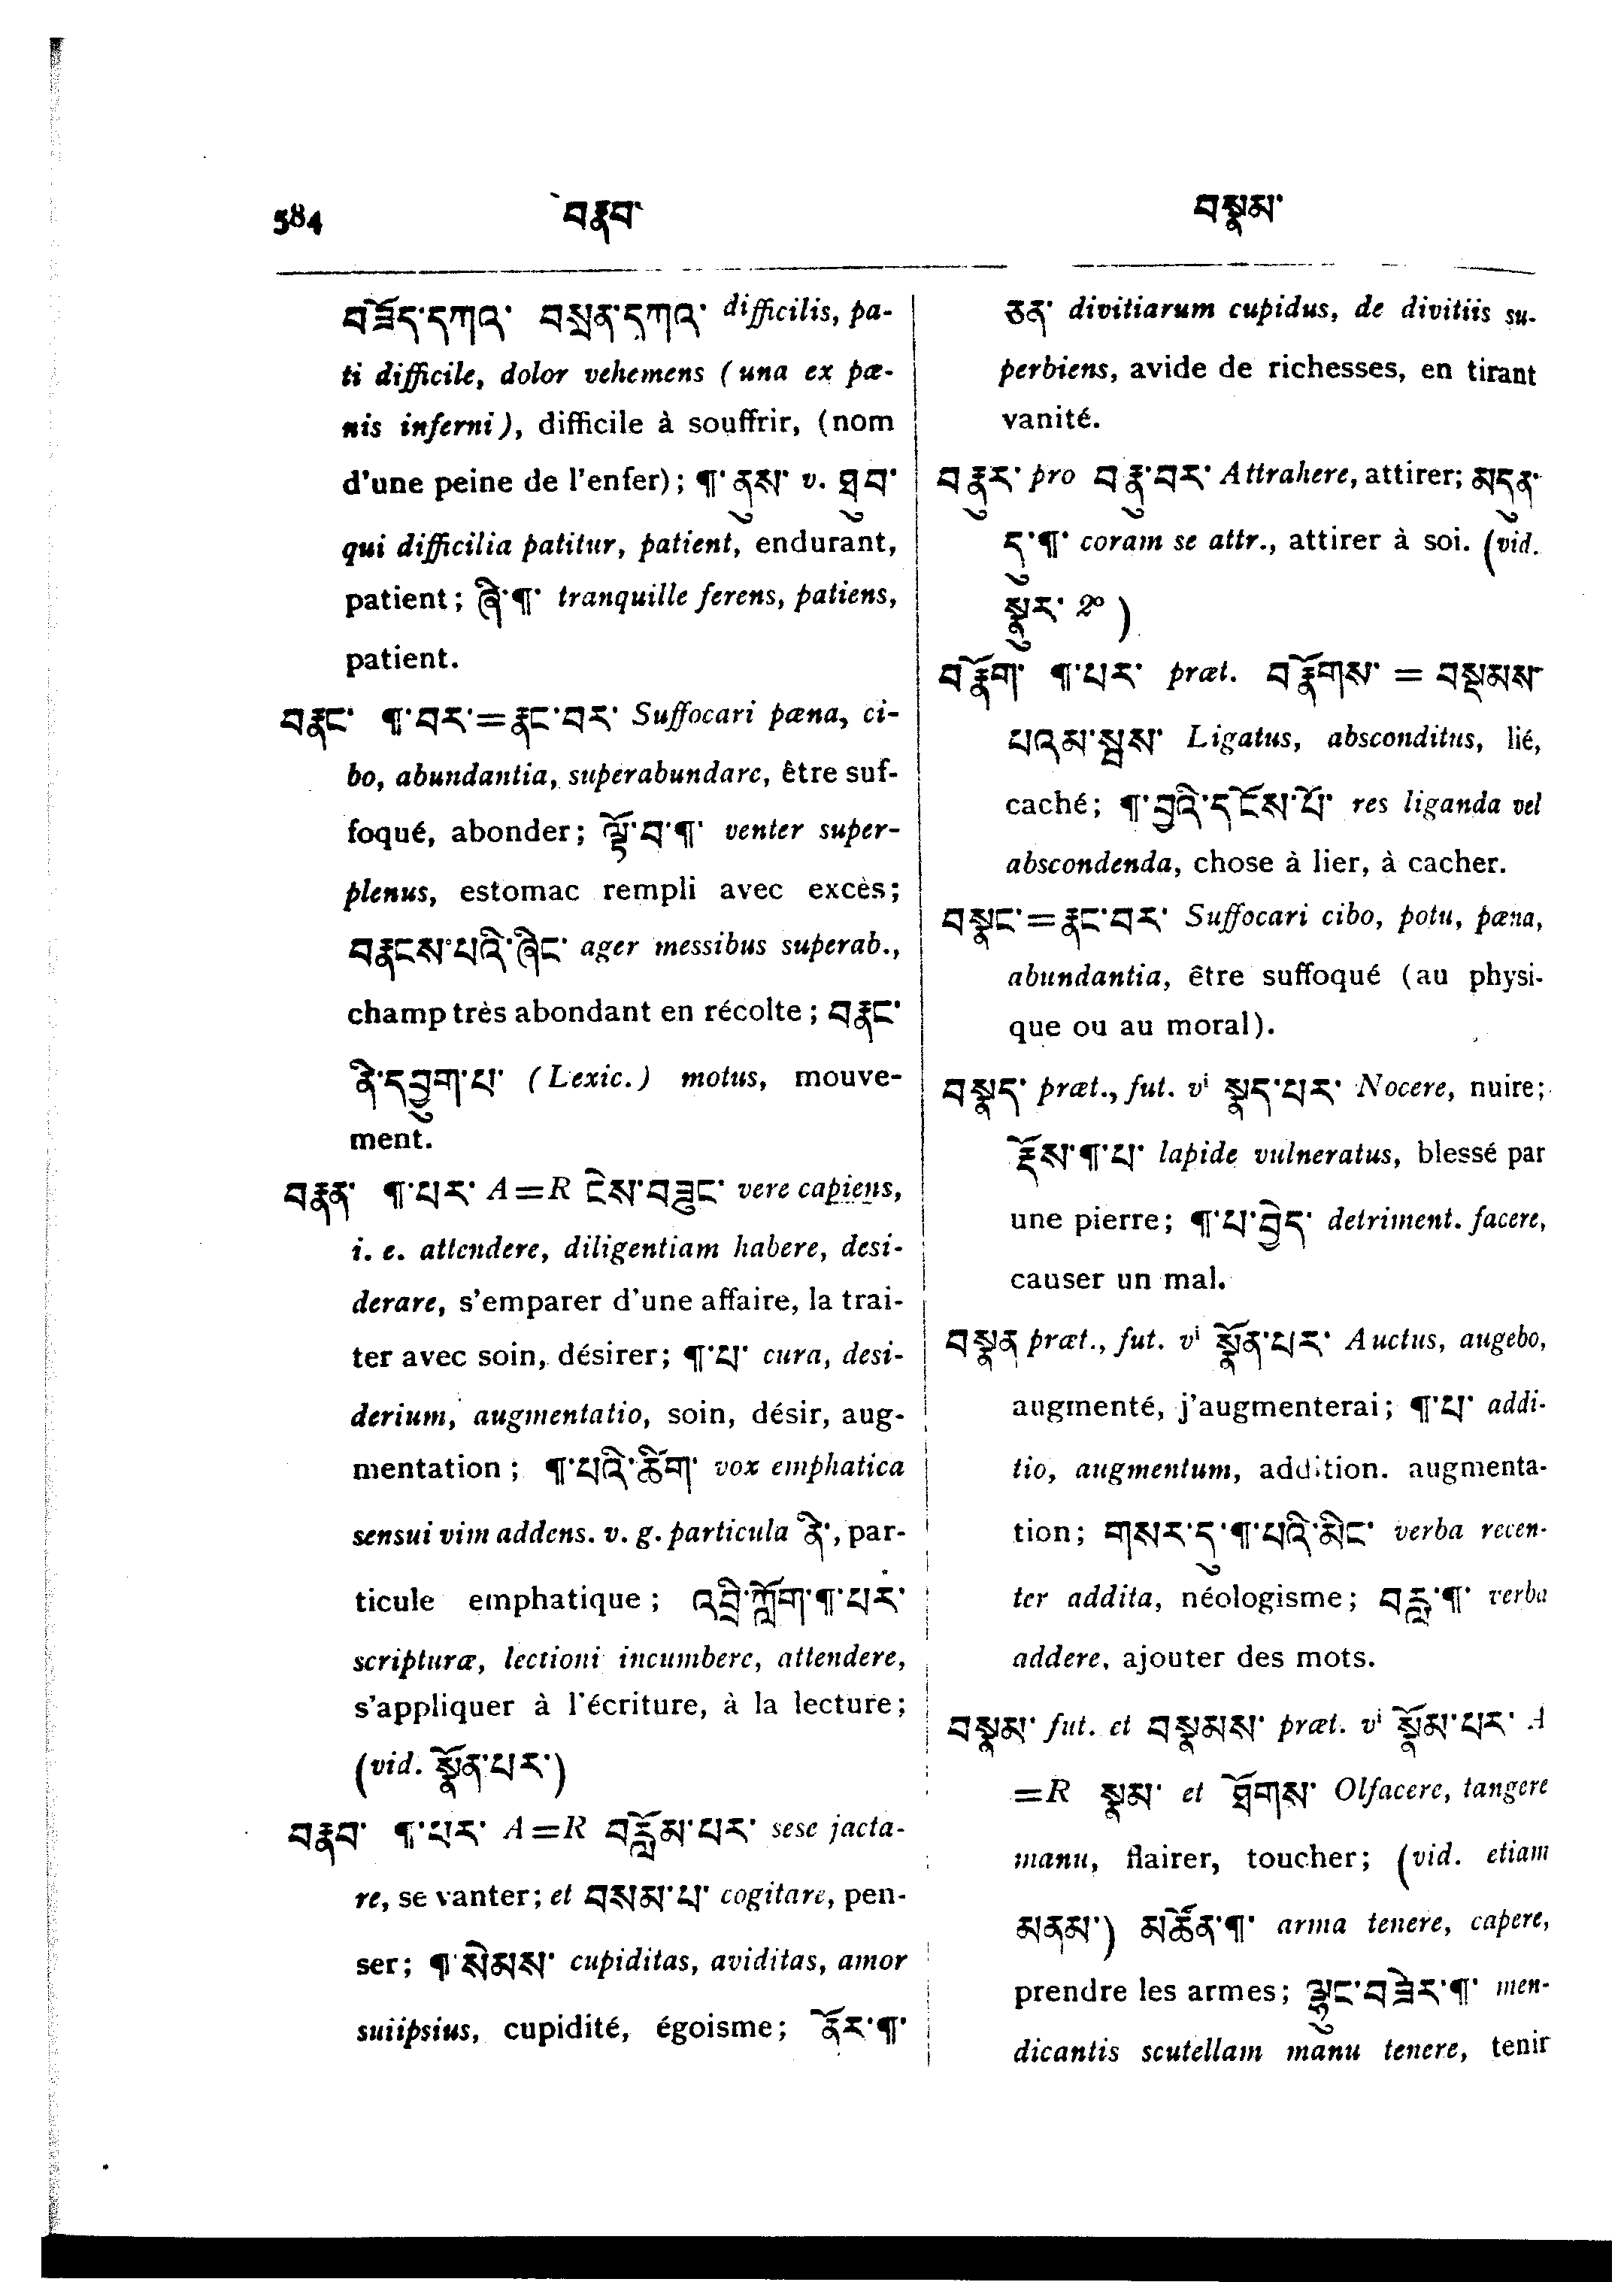 584 བརྣབ་ བསྣམ་
བཟོད་དཀའ་ བསྲན་དཀའ་ difficilis, pa-
ti difficile, dolor vehemens (una ex pæ-
nis inferni), difficile à souffrir, (nom
d'une peine de l'enfer); ¶་ནུས་ v. ཐུབ་
qui difficilia patitur, patient, endurant,
patient; ཞི་¶་ tranquille ferens, patiens,
patient.
བརྣང་ ¶་བར་=རྣང་བར་ Suffocari pæna, ci-
bo, abundantia, superabundare, être suf-
foqué, abonder; ལྟོ་བ་¶་ venter super-
plenus, estomac rempli avec excès;
བརྣངས་པའི་ཞིང་ ager messibus superab.,
champ très abondant en récolte; བརྣང་
ནི་དབྱུག་པ་ (Lexic.) motus, mouve-
ment.
བརྣན་ ¶་པར་ A=R ངེས་བཟུང་ vere capiens,
i. e. attendere, diligentiam habere, desi-
derare, s'emparer d'une affaire, la trai-
ter avec soin, désirer; ¶་པ་ cura, desi-
derium, augmentatio, soin, désir, aug-
mentation; ¶་པའི་ཚིག་ vox emphatica
sensui vim addens. v. g. particula ནི་, par-
ticule emphatique; འབྲི་ཀློག་¶་པར་
scripturæ, lectioni incumbere, attendere,
s'appliquer à l'écriture, à la lecture;
(vid. སྣོན་པར་)
བརྣབ་ ¶་པར་ A=R བརློམ་པར་ sese jacta-
re, se vanter; et བསམ་པ་ cogitare, pen-
ser; ¶་སེམས་ cupiditas, aviditas, amor
suiipsius, cupidité, égoisme; ནོར་¶་
ཅན་ divitiarum cupidus, de divitiis su-
perbiens, avide de richesses, en tirant
vanité.
བརྣུར་ pro བརྣུ་བར་ Attrahere, attirer; མདུན་
དུ་¶་ coram se attr., attirer à soi. (vid.
སྣུར་ 2º)
བརྣོག་ ¶་པར་ præt. བརྣོགས་ = བསྡམས་
པའམ་སྦས་ Ligatus, absconditus, lié,
caché; ¶་བྱའི་དངོས་པོ་ res liganda vel
abscondenda, chose à lier, à cacher.
བསྣང་=རྣང་བར་ Suffocari cibo, potu, pæna,
abundantia, être suffoqué (au physi-
que ou au moral).
བསྣད་ præt., fut. vⁱ སྣད་པར་ Nocere, nuire;
རྡོས་¶་པ་ lapide vulneratus, blessé par
une pierre; ¶་པ་བྱེད་ detriment. facere,
causer un mal.
བསྣན præt., fut. vⁱ སྣོན་པར་ Auctus, augebo,
augmenté, j'augmenterai; ¶་པ་ addi-
tio, augmentum, addition. augmenta-
tion; གསར་དུ་¶་པའི་མིང་ verba recen-
ter addita, néologisme; བརྡ་¶་ verba
addere, ajouter des mots.
བསྣམ་ fut. et བསྣམས་ præt. vⁱ སྣོམ་པར་ A
=R སྣམ་ et ཐོགས་ Olfacere, tangere
manu, flairer, toucher; (vid. etiam
མནམ་) མཚོན་¶་ arma tenere, capere,
prendre les armes; ལྷུང་བཟེར་¶་ men-
dicantis scutellam manu tenere, tenir